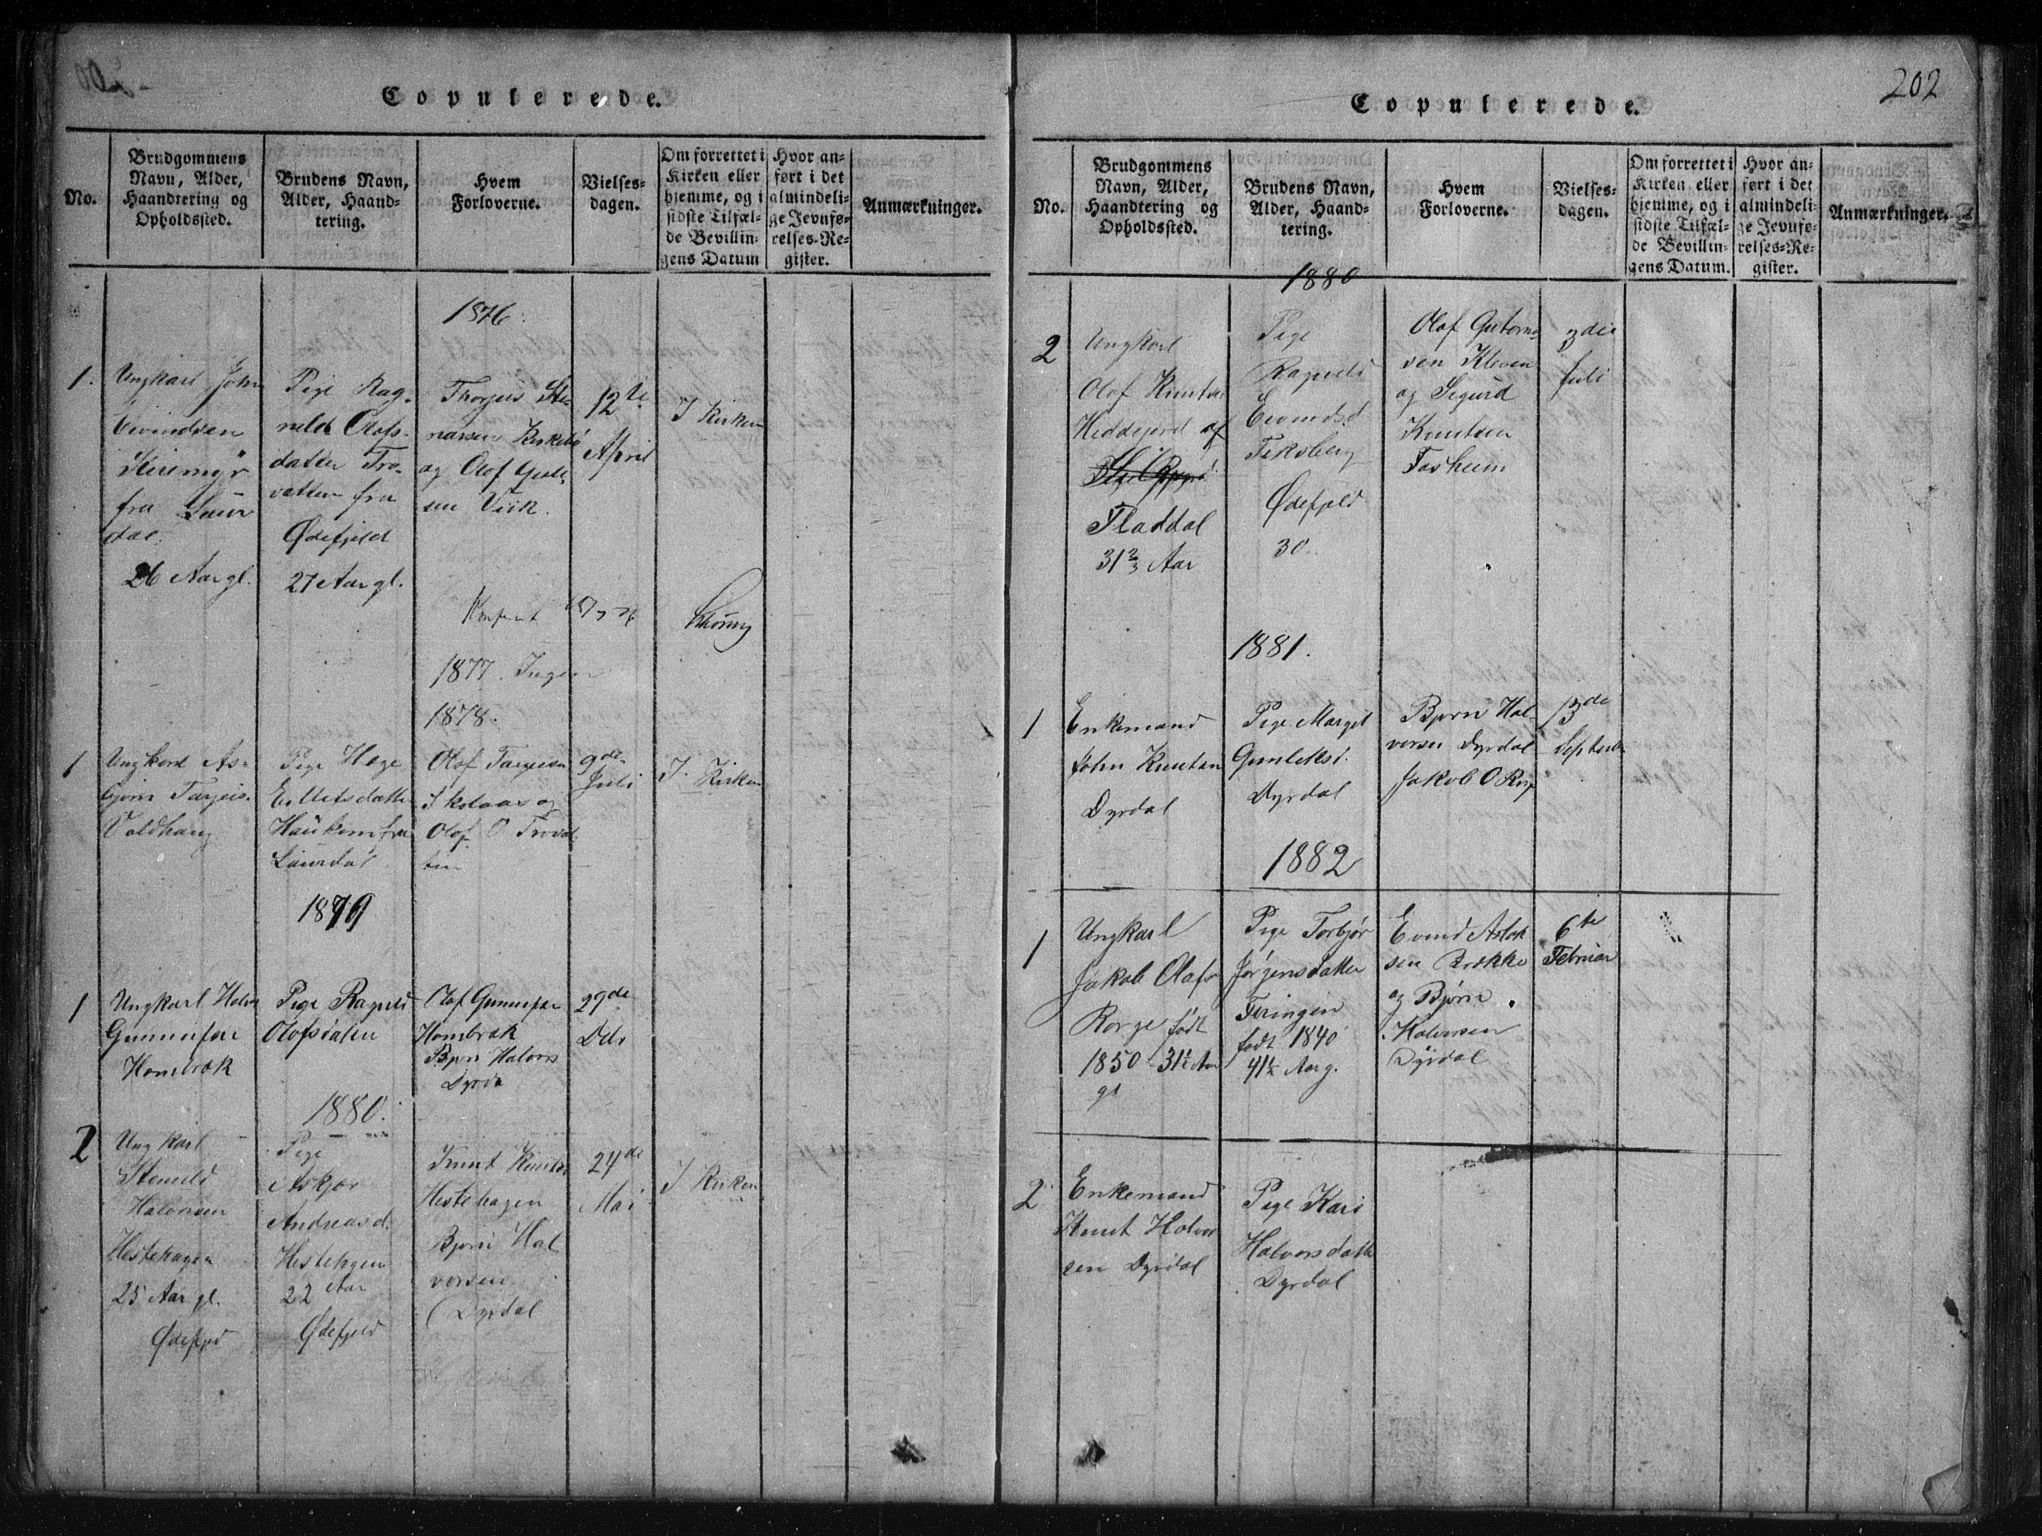 Copulerede.
No.
Brudgommens
Navn, Alder,
Haandtering og
Opholdssted.
Brudens Navn,
Alder, Haand-
tering.
Hvem
Forloverne.
Vielses-
dagen.
Om forrettet i
Kirken eller
hjemme, og i
sidste Tilfæl-
de Bevillin-
gens Datum
Hvor an-
ført i det
almindeli-
ge Jevnfø-
relses-Re-
gister.
Anmærkninger.
1876.
1.
Ungkarl John
Eivindsen
fra Laur
dal.
26 Aar gl.
Pige Rag-
nild Olafs-
datter Tro-
vatten fra
Ødefjeld
27 Aar gl.
Thorjus Ste-
narsen Kirkebø
og Olof
sen Viik.
12te
April
I Kirken
1877. Ingen
1878.
1
Ungkarl As-
bjørn Targeis.
Voldhaug
Pige Hæge
Haukom fra
Laurdal
Olof Targeisen
Skolaas og
Olof O Trovat
ten
9de
Juli
I Kirken
1879
1
Ungkarl Halvor
Gunnufsen
Hombræk
Pige Ragnild
Olofsdatter
Olof Gunnufsen
Hombræk
Bjørn Halvors
Dyrda
29de
Dcbr
1880.
2
Ungkarl
Halvorsen
Hestehagen
25 Aar gl.
Ødefjeld
Pige
Askjær
Andreasd.
Hestehgen
22 Aar
Ødefjeld
Knut Knuts
Hestehagen
Bjørn Hal
vorsen
Dyrdal
24de
Mai
I Kirken
202
Copulerede.
No.
Brudgommens
Navn, Alder,
Haandtering og
Opholdssted.
Brudens Navn,
Alder, Haand-
tering.
Hvem
Forloverne.
Vielses-
dagen.
Om forrettet i
Kirken eller
hjemme, og i
sidste Tilfæl-
de Bevillin-
gens Datum.
Hvor an-
ført i det
almindeli-
ge Jevnfø-
relses-Re-
gister.
Anmærkninger.
1880
2
Ungkarl
Olof Knutsen
Hiddejord af
Fladdal
31 2/3 Aar
Pige
Ragnild
Eivindsd.
Ødefjeld
30.
Olof Guttorm-
sen Kleven
og Sigurd
Knutsen
Tosheim
3die
Juli
1881.
1
Enkemand
John Knutsen
Dyrdal
Pige Margit
Gunleiksd.
Dyrdal
Bjørn Hal-
vorsen Dyrdal
Jakob O Rorge
13de
Septmbr
1882
1
Ungkarl
Jakob Olafs
Rorge født
1850 - 31½ Aar
gl
Pige Torbjør
Jørgensdatter
Feiringen
født 1840
41½ Aar g.
Eivind Aslak
sen Brække
og Bjørn
Halvorsen
Dyrdal
6te
Februar
2
Enkemand
Knut Halvor
sen Dyrdal
Pige Kari
Halvorsdatter
Dyrdal